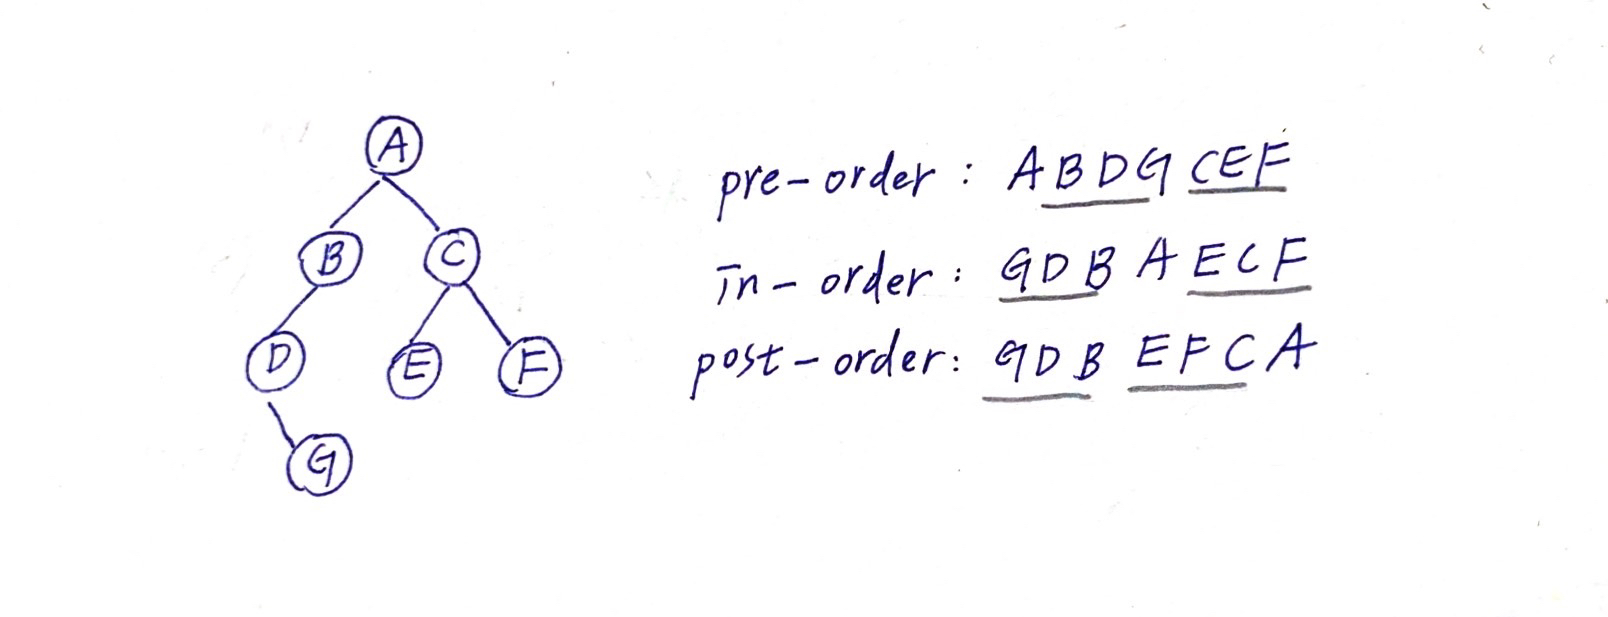 A
B C
D E F
G
pre-order: ABDG CEF
in-order: GDB A ECF
post-order: GDB EFC A